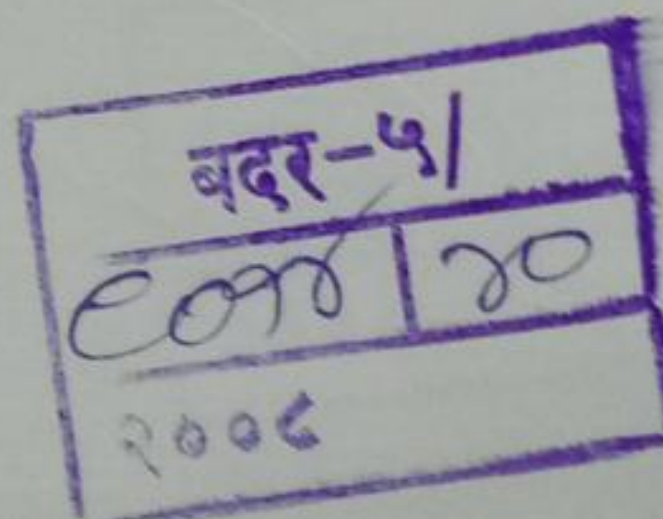 बदर-५/
९०१४ २०
२००८